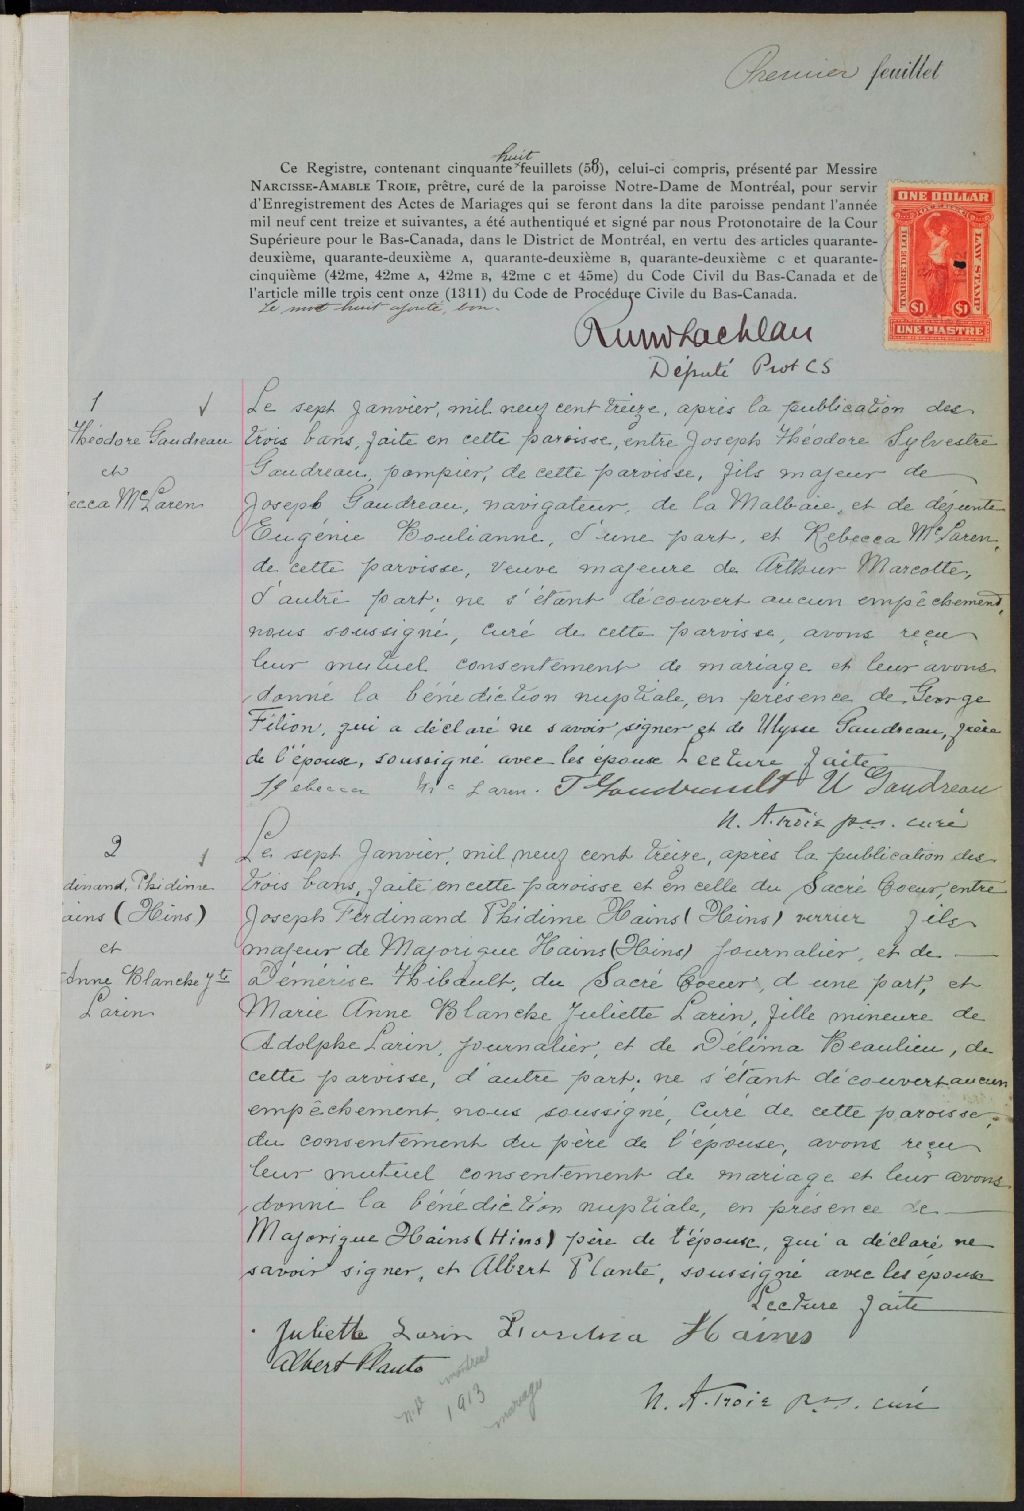 Premier feuillet
huit
Ce Registre, contenant cinquante feuillets (58), celui-ci compris, présenté par Messire
NARCISSE-AMABLE TROIE, prêtre, curé de la paroisse Notre-Dame de Montréal, pour servir
d'Enregistrement des Actes de Mariages qui se feront dans la dite paroisse pendant l'année
mil neuf cent treize et suivantes, a été authentiqué et signé par nous Protonotaire de la Cour
Supérieure pour le Bas-Canada, dans le District de Montréal, en vertu des articles quarante-
deuxième, quarante-deuxième A, quarante-deuxième B, quarante-deuxième C et quarante-
cinquième (42me, 42me A, 42me B, 42me C et 45me) du Code Civil du Bas-Canada et de
l'article mille trois cent onze (1311) du Code de Procédure Civile du Bas-Canada.
Le mot huit ajouté, bon.
ONE DOLLAR
TIMBRE DE LOI
LAW STAMP
$1 $1
UNE PIASTRE
Député Prot CS
1
Théodore Gaudreau
et
ecca McLaren
Le sept Janvier, mil neuf cent treize, après la publication des
trois bans, faite en cette paroisse, entre Joseph Théodore Sylvestre
Gaudreau, pompier, de cette paroisse, fils majeur de
Joseph Gaudreau, navigateur, de la Malbaie, et de défunte
Eugénie Boulianne, d'une part, et Rebecca McLaren,
de cette paroisse, veuve majeure de Arthur Marcotte,
d'autre part; ne s'étant découvert aucun empêchement,
nous soussigné, curé de cette paroisse, avons reçu
leur mutuel consentement de mariage et leur avons
donné la bénédiction nuptiale, en présence de George
Filion, qui a déclaré ne savoir signer et de Ulysse Gaudreau, frère
de l'époux, soussigné avec les époux Lecture faite
Rebecca Mc Laren. T Gaudreault U Gaudreau
N. A. Troie pss. curé
2
dinand, Phidime
ains (Hins)
et
Anne Blanche Jte
Larin
Le sept Janvier, mil neuf cent treize, après la publication des
trois bans, faite en cette paroisse et en celle du Sacré Coeur, entre
Joseph Ferdinand Phidime Hains (Hins) verrier fils
majeur de Majorique Hains (Hins) journalier, et de
Démérise Thibault, du Sacré Coeur, d'une part, et
Marie Anne Blanche Juliette Larin, fille mineure de
Adolphe Larin, journalier, et de Délima Beaulieu, de
cette paroisse, d'autre part; ne s'étant découvert aucun
empêchement, nous soussigné, curé de cette paroisse,
du consentement du père de l'épouse, avons reçu
leur mutuel consentement de mariage et leur avons
donné la bénédiction nuptiale, en présence de
Majorique Hains (Hins) père de l'époux, qui a déclaré ne
savoir signer, et Albert Plante, soussigné avec les époux
Lecture faite
Juliette Larin Hains
Albert Plante
N.D. montreal
1913
mariage
N. A. Troie pss. curé